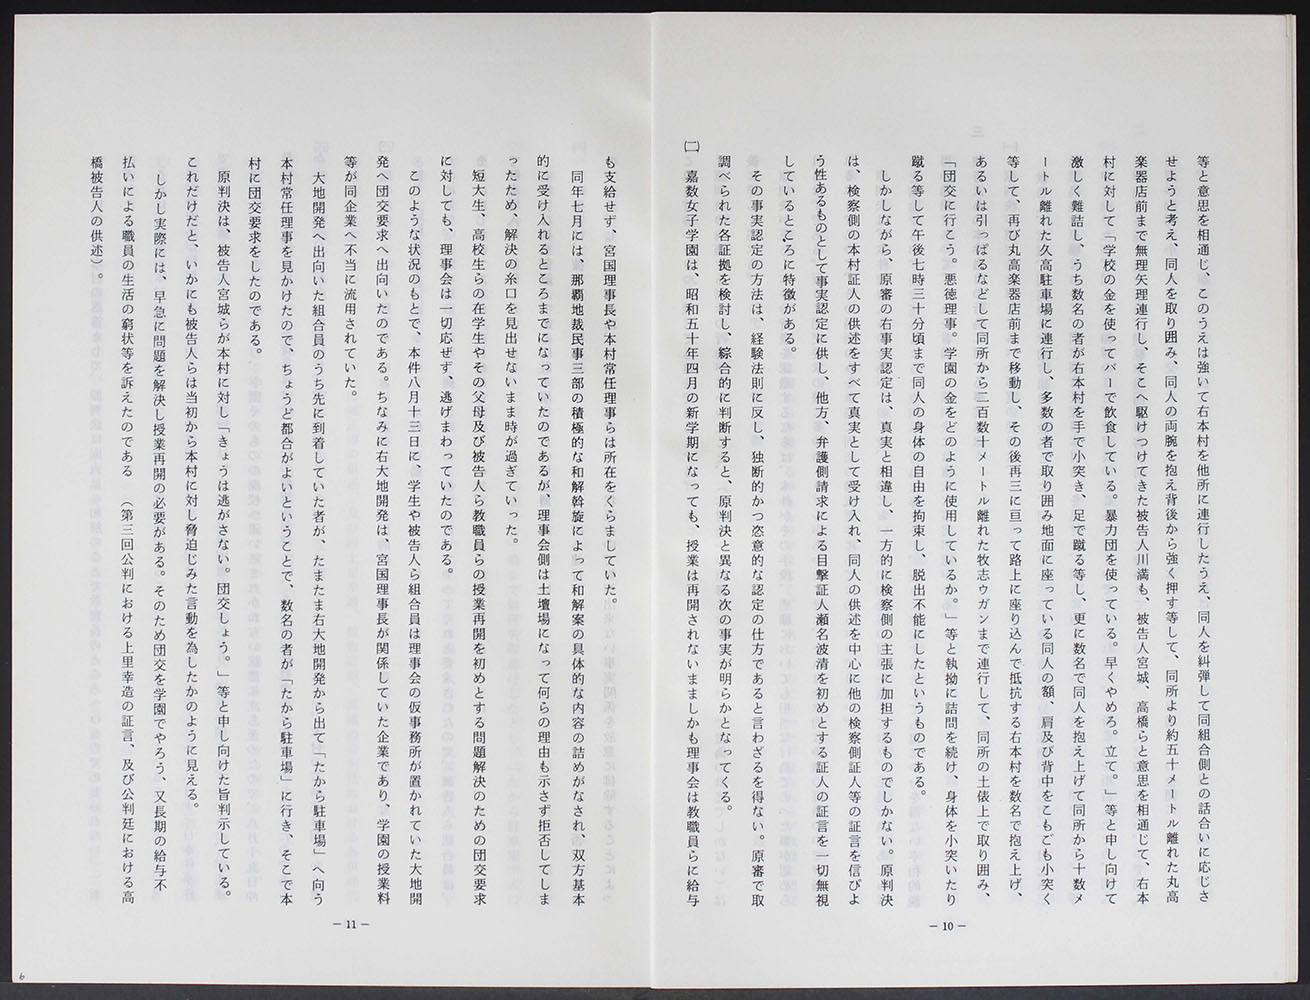 等と意思を相通じ、このうえは強いて右本村を他所に連行したうえ、同人を糾弾して同組合側との話合いに応じさ
せようと考え、同人を取り囲み、同人の両腕を抱え背後から強く押す等して、同所より約五十メートル離れた丸高
楽器店前まで無理矢理連行し、そこへ駆けつけてきた被告人川満も、被告人宮城、高橋らと意思を相通じて、右本
村に対して「学校の金を使ってバーで飲食している。暴力団を使っている。早くやめろ。立て。」等と申し向けて
激しく難詰し、うち数名の者が右本村を手で小突き、足で蹴る等し、更に数名で同人を抱え上げて同所から十数メ
ートル離れた久高駐車場に連行し、多数の者で取り囲み地面に座っている同人の額、肩及び背中をこもごも小突く
等して、再び丸高楽器店前まで移動し、その後再三に亘って路上に座り込んで抵抗する右本村を数名で抱え上げ、
あるいは引っぱるなどして同所から二百数十メートル離れた牧志ウガンまで連行して、同所の土俵上で取り囲み、
「団交に行こう。悪徳理事。学園の金をどのように使用しているか。」等と執拗に詰問を続け、身体を小突いたり
蹴る等して午後七時三十分頃まで同人の身体の自由を拘束し、脱出不能にしたというものである。
しかしながら、原審の右事実認定は、真実と相違し、一方的に検察側の主張に加担するものでしかない。原判決
は、検察側の本村証人の供述をすべて真実として受け入れ、同人の供述を中心に他の検察側証人等の証言を信ぴょ
う性あるものとして事実認定に供し、他方、弁護側請求による目撃証人瀬名波清を初めとする証人の証言を一切無視
しているところに特徴がある。
その事実認定の方法は、経験法則に反し、独断的かつ恣意的な認定の仕方であると言わざるを得ない。原審で取
調べられた各証拠を検討し、綜合的に判断すると、原判決と異なる次の事実が明らかとなってくる。
㈡ 嘉数女子学園は、昭和五十年四月の新学期になっても、授業は再開されないまましかも理事会は教職員らに給与
― 10 ―
も支給せず、宮国理事長や本村常任理事らは所在をくらましていた。
同年七月には、那覇地裁民事三部の積極的な和解斡旋によって和解案の具体的な内容の詰めがなされ、双方基本
的に受け入れるところまでになっていたのであるが、理事会側は土壇場になって何らの理由も示さず拒否してしま
ったため、解決の糸口を見出せないまま時が過ぎていった。
短大生、高校生らの在学生やその父母及び被告人ら教職員らの授業再開を初めとする問題解決のための団交要求
に対しても、理事会は一切応ぜず、逃げまわっていたのである。
このような状況のもとで、本件八月十三日に、学生や被告人ら組合員は理事会の仮事務所が置かれていた大地開
発へ団交要求へ出向いたのである。ちなみに右大地開発は、宮国理事長が関係していた企業であり、学園の授業料
等が同企業へ不当に流用されていた。
大地開発へ出向いた組合員のうち先に到着していた者が、たまたま右大地開発から出て「たから駐車場」へ向う
本村常任理事を見かけたので、ちょうど都合がよいということで、数名の者が「たから駐車場」に行き、そこで本
村に団交要求をしたのである。
原判決は、被告人宮城らが本村に対し「きょうは逃がさない。団交しょう。」等と申し向けた旨判示している。
これだけだと、いかにも被告人らは当初から本村に対し脅迫じみた言動を為したかのように見える。
しかし実際には、早急に問題を解決し授業再開の必要がある。そのため団交を学園でやろう、又長期の給与不
払いによる職員の生活の窮状等を訴えたのである （第三回公判における上里幸造の証言、及び公判廷における高
橋被告人の供述）。
― 11 ―
6